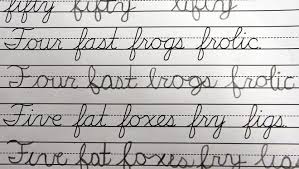 fifty fifty fifty
Four fast frogs frolic.
Four fast frogs frolic
Five fat foxes fry figs.
Five fat foxes fry